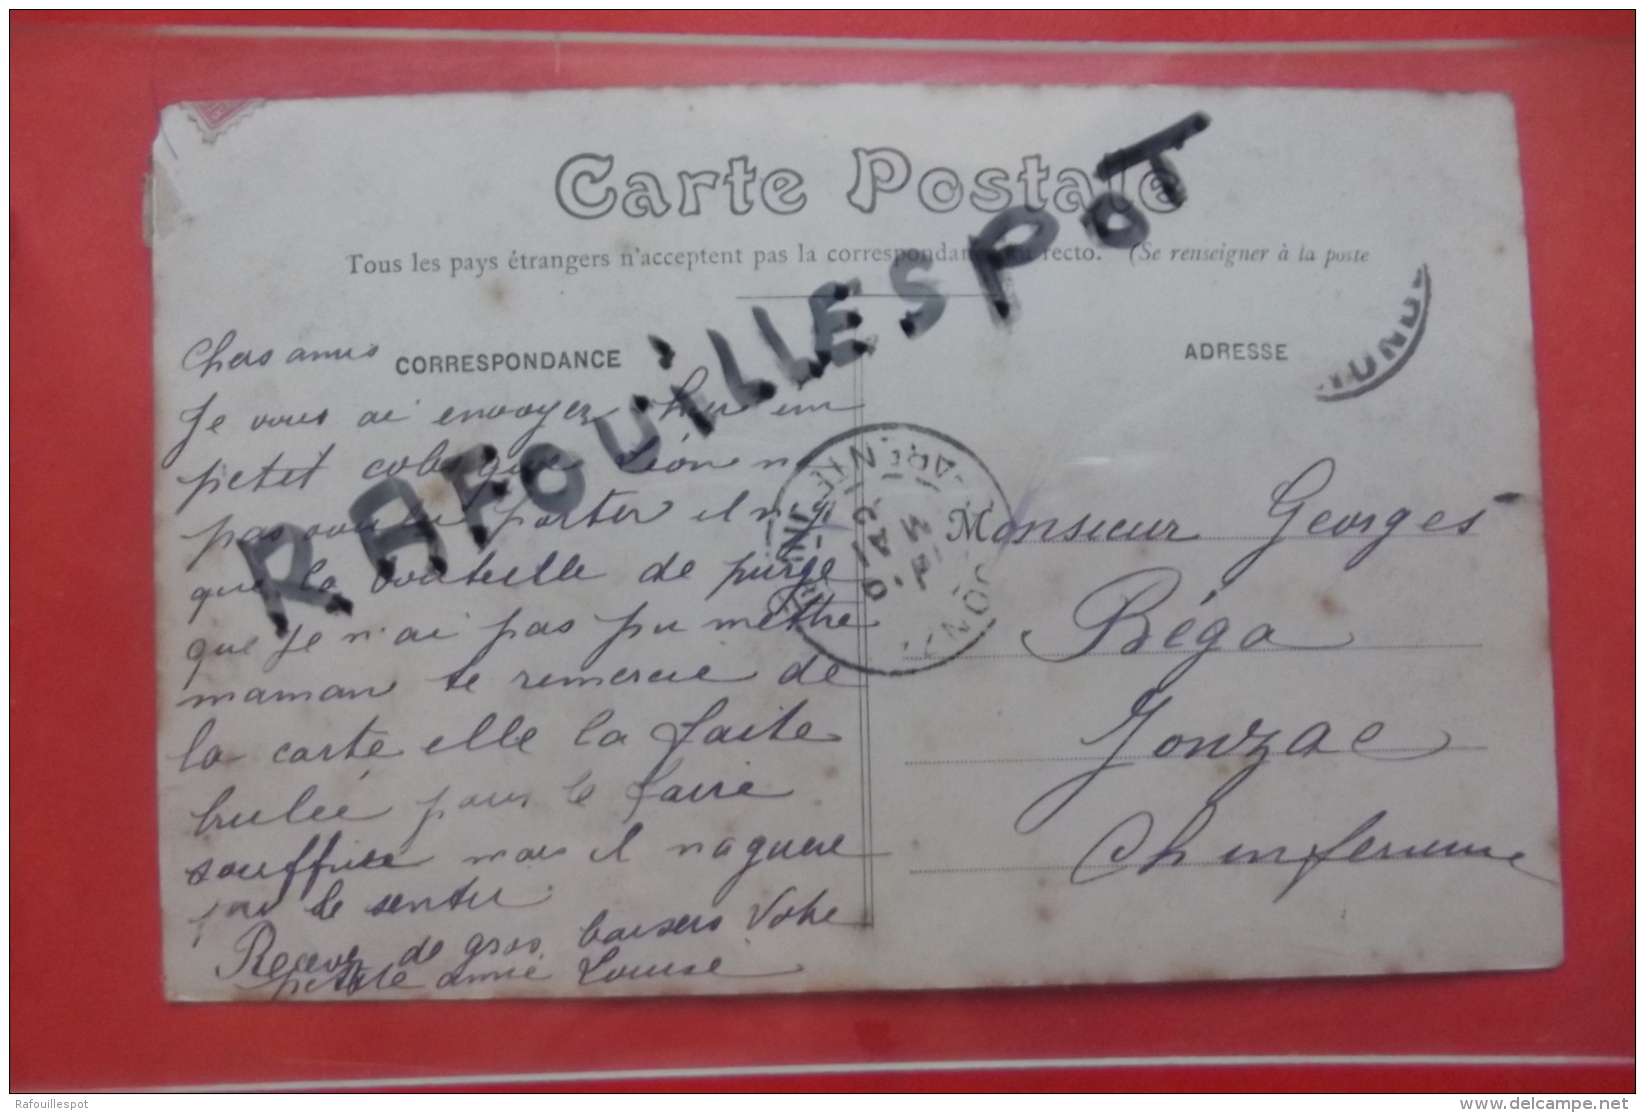 Carte Postale
Tous les pays étrangers n'acceptent pas la correspondance au recto. (Se renseigner à la poste
CORRESPONDANCE
ADRESSE
RAFOUILLESPOT
Chers amis
Je vous ai envoyez hier un
petit colis que Léon n
pas voulu porter il n'y
que la bouteille de purge
que je n'ai pas pu mettre
maman te remercie de
la carte elle la faite
brulée pour le faire
souffrire mais il naguere
pas le sentir
Recevez de gros baisers Votre
petite amie Louise
Monsieur Georges
Béga
Jonzac
Ch inferieure
Rafouillespot
delcampe.net